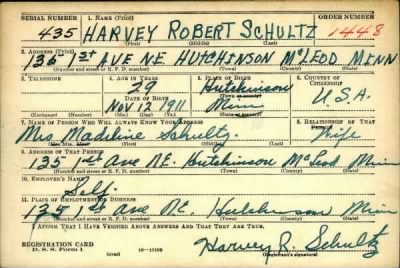 SERIAL NUMBER 1. NAME (Print) ORDER NUMBER
435 HARVEY ROBERT SCHULTZ 1448
(First) (Middle) (Last)
2. ADDRESS (Print)
135 1st AVE NE HUTCHINSON McLEOD MINN
(Number and street or R. F. D. number) (Town) (County) (State)
3. TELEPHONE 4. AGE IN YEARS 5. PLACE OF BIRTH 6. COUNTRY OF CITIZENSHIP
29 Hutchinson
DATE OF BIRTH (Town or county)
Nov. 12 1911 Minn U.S.A.
(Exchange) (Number) (Mo.) (Day) (Yr.) (State or country)
7. NAME OF PERSON WHO WILL ALWAYS KNOW YOUR ADDRESS 8. RELATIONSHIP OF THAT PERSON
Mrs Madeline Schultz Wife
(Mr., Mrs., Miss) (First) (Middle) (Last)
9. ADDRESS OF THAT PERSON
135 1st Ave NE. Hutchinson McLeod Minn
(Number and street or R. F. D. number) (Town) (County) (State)
10. EMPLOYER'S NAME
Self.
11. PLACE OF EMPLOYMENT OR BUSINESS
135 1st Ave NE. Hutchinson Minn
(Number and street or R. F. D. number) (Town) (County) (State)
I AFFIRM THAT I HAVE VERIFIED ABOVE ANSWERS AND THAT THEY ARE TRUE.
REGISTRATION CARD
D. S. S. Form 1 16—17105
(over) Harvey R. Schultz
(Registrant's signature)